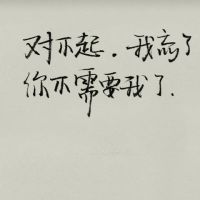 对不起.我忘了
你不需要我了.